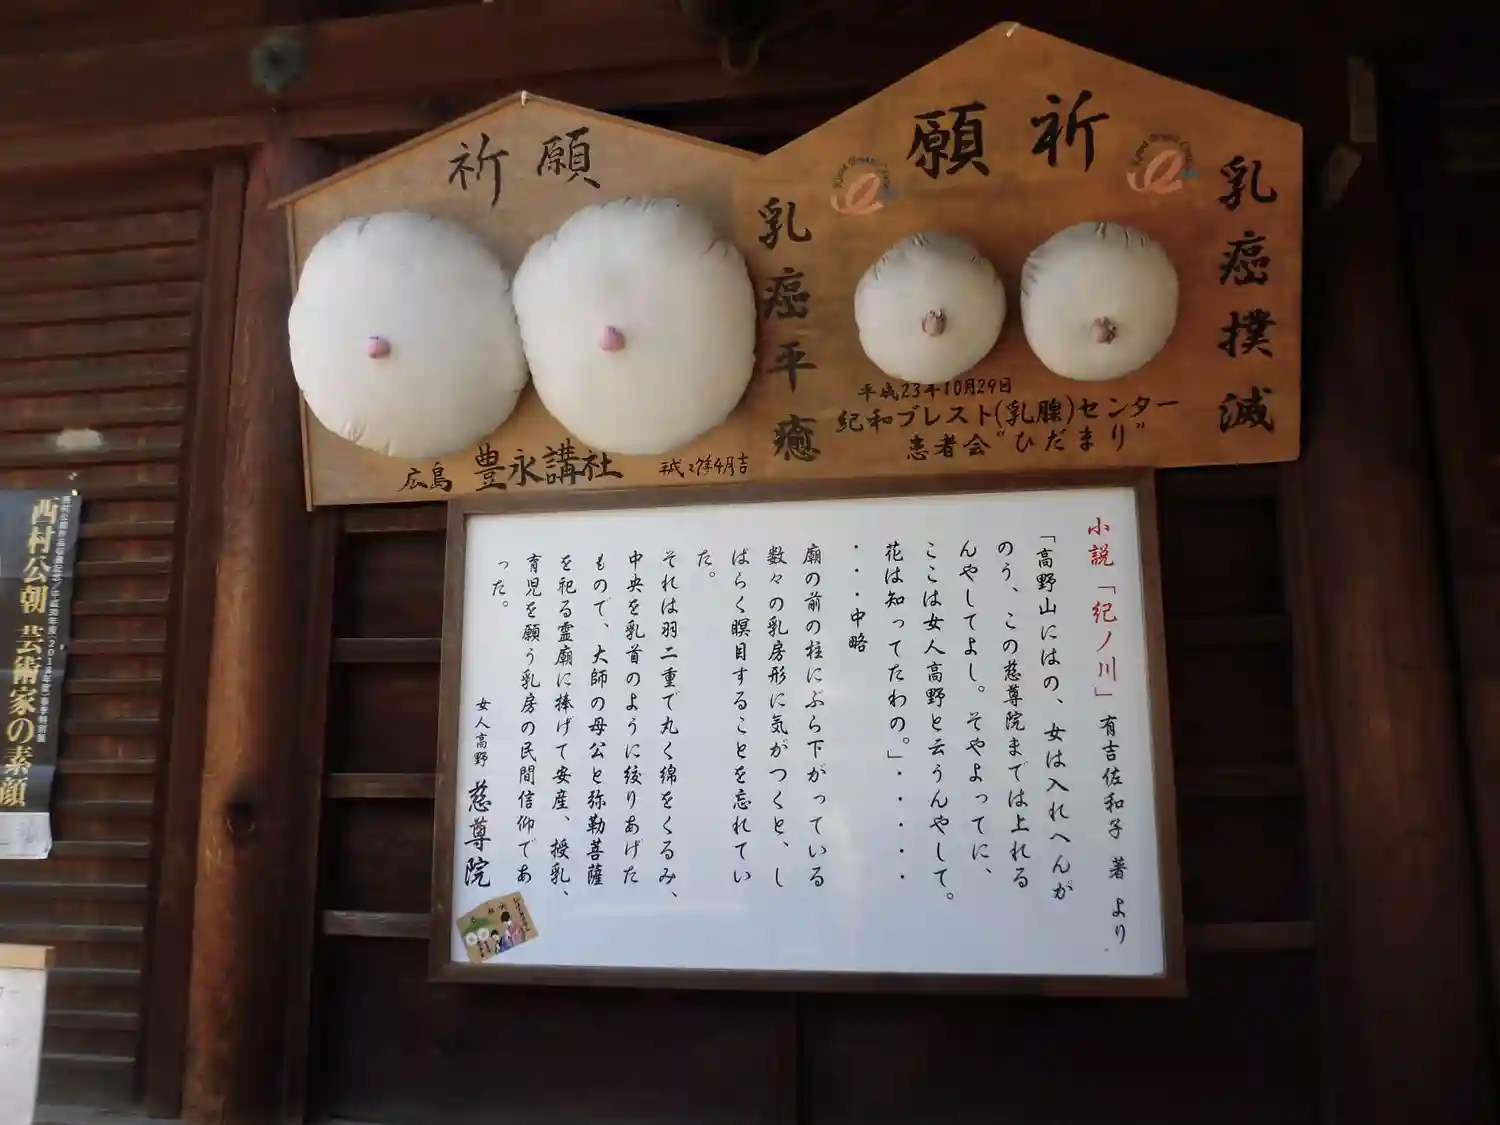 祈願
乳癌平癒
広島 豊永講社
祈願
乳癌撲滅
平成23年10月29日
紀和ブレスト(乳腺)センター
患者会"ひだまり"
小説「紀ノ川」有吉佐和子 著 より
「高野山にはの、女は入れへんが
のう、この慈尊院までは上れる
んやしてよし。そやよってに、
ここは女人高野と云うんやして。
花は知ってたわの。」・・・・・
・・・中略
廟の前の柱にぶら下がっている
数々の乳房形に気がつくと、し
ばらく瞑目することを忘れてい
た。
それは羽二重で丸く綿をくるみ、
中央を乳首のように絞りあげた
もので、大師の母公と弥勒菩薩
を祀る霊廟に捧げて安産、授乳、
育児を願う乳房の民間信仰であ
った。
女人高野 慈尊院
西村公朝 芸術家の素顔